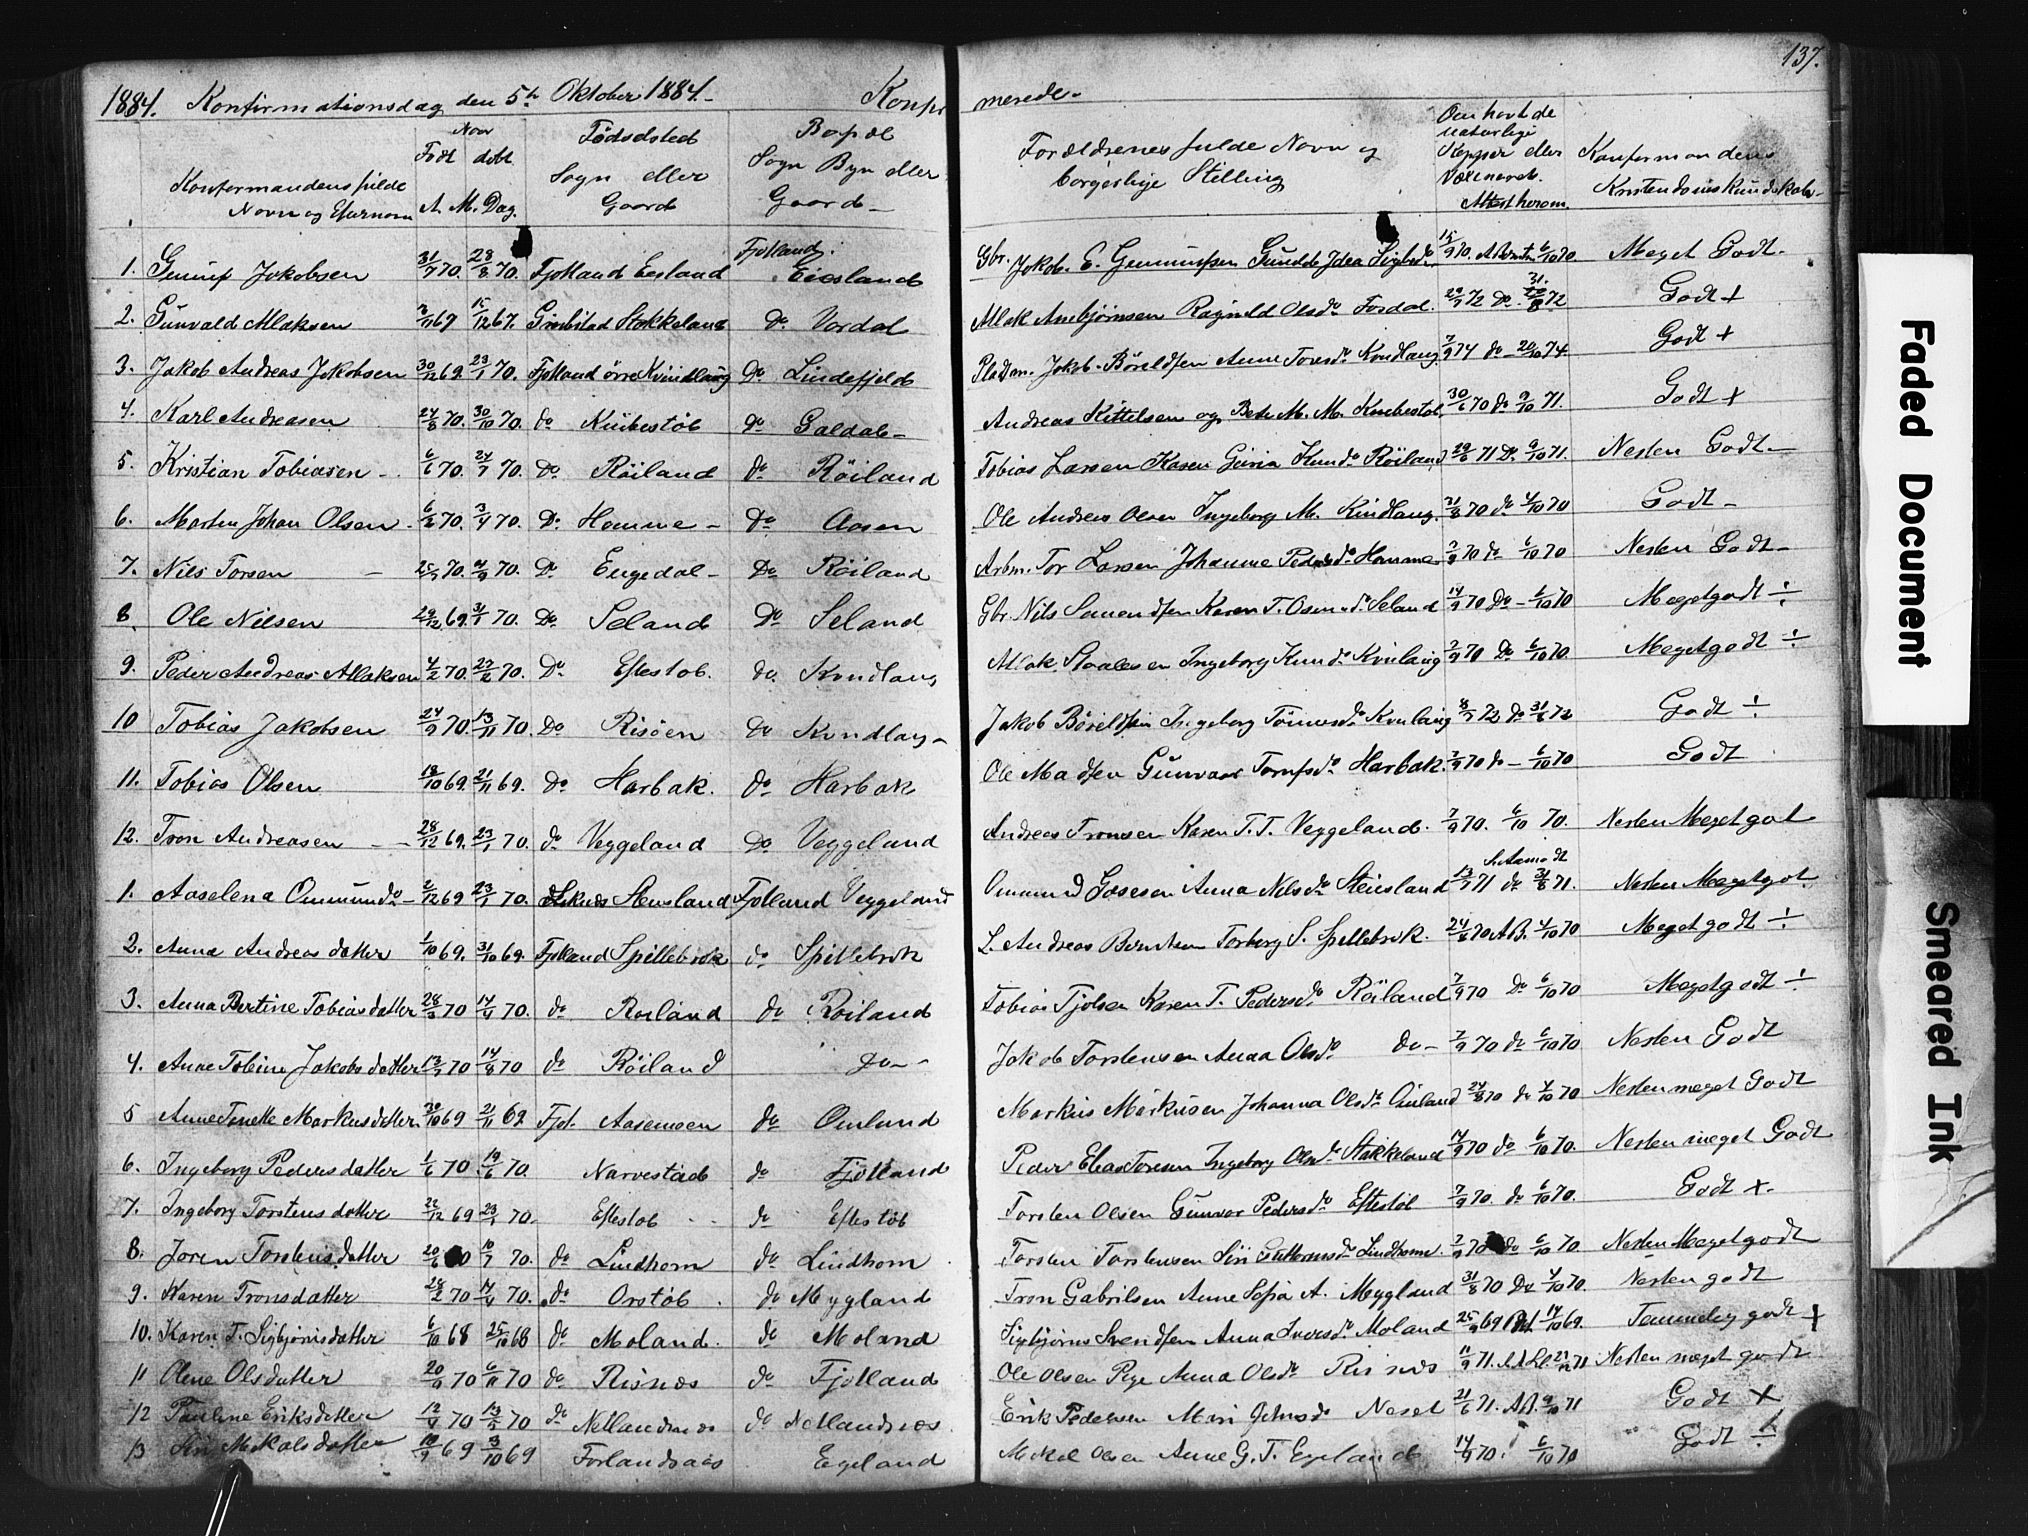 137.
1884. Konfirmationsdag den 5te Oktober 1884. Konfirmerede.
Konfirmandens fulde Navn og Efternavn
Naar Født døbt
A. M. Dag.
Fødselsted Sogn eller Gaard
Bopæl Sogn Byn eller Gaard
Forældrenes fulde Navn og borgerlige Stilling
Om havt de naturlige Kopper eller Vaccineret. Attest herom.
Konfirmandens Kristendomskundskaber
1. Jakobsen 31/7 70. 28/8 70. Fjotland Eesland Fjotland Eiesland Gbr. Jakob. E. 15/9 70. 6/10 70 Meget Godt
2. Gunvald Aslaksen 67 15/12 67. Stokkeland Do Vordal Aslak Anebjørnsen Ragnild Olsda Fordal. 29/9 72 Do 31/8 72 Godt +
3. Jakob Andreas Jakobsen 30/12 69. 23/1 70. Fjotland øvre Kvindlaug Do Lindefjeld Pladsm. Jakob Anne Kvindlaug 7/9 74 do 20/10 74. Godt +
4. Karl Andreasen 24/8 70. 30/10 70. do Knibestøb Do Galdal Andreas Kittelsen og M. M. Knibestøb 30/6 70 do 9/10 71. Godt +
5. Kristian Tobiasen 6/6 70. 24/7 70. Do Røiland do Røiland Tobias Larsen Karen Røiland 29/6 71 D. 9/10 71. Nesten Godt
6. Martin Johan Olsen 6/2 70. 3/4 70. Do Homme Do Aasen Ole Andreas Olsen Ingeborg M. Kindlaug. 31/8 70 do 4/10 70 Godt
7. Nils Torsen 70. 70. Do Eugedal Do Røiland Arbm. Tor Larsen Johanne Pedersda Homme 7/9 70 do 6/10 70 Nesten Godt
8. Ole Nilsen 29/12 69. 31/1 70. Do Seland Do Seland Gbr. Nils Karen T. Seland 14/9 70 Do 6/10 70 Megetgodt ÷
9. Peder Andreas Aslaksen 4/2 70. 27/2 70. Do Eftestøb. do. Kvindlaug Aslak Ingeborg Kvinlaug 7/9 70 Do 6/10 70. Megetgodt ÷
10 Tobias Jakobsen 24/9 70. 13/11 70. Do Risøen Do Kvindlaug Jakob Ingeborg Tønnesda Kvinlaug 8/7 72 do 31/8 72 Godt ÷
11. Tobias Olsen 18/10 69. 21/11 69. Do Harbak. do Harbak Ole Gunvaar Harbak. 7/9 70 do 6/10 70 Godt
12. Tron Andreasen 28/12 69. 23/1 70. do Veggeland Do Veggeland Andreas Tronsen Karen T. T. Veggeland. 7/9 70. 6/10 70. Nesten Meget got
1. Aaselena Ommundda 2/12 69 23/1 70. Steusland Fjotland Veggeland Ommund Gosesen Anna Nelsda Steusland 13/7 71 do 31/8 71. Nesten Meget got
2. Anna Andreasdatter 1/10 69. 31/10 69. Fjotland Spillebrok do Spillebrok L. Andreas Berntsen Torborg S. Spillebrok. 24/8 70 A B. 4/10 70 Megetgodt ÷
3. Anna Bertine Tobiasdatter 28/2 70 14/4 70. do Røiland do Røiland Tobias Karen T. Pedersda Røiland 7/9 70 Do 6/10 70 Megetgodt ÷
4. Anne Tobine Jakobsdatter 13/7 70 14/8 70 do Røiland Do Jakob Torstensen Anna Olsda Do 7/9 70 do 6/10 70 Nesten Godt
5 Anne Tonette Markusdatter 20/10 69 21/11 69 Fjot. Aasemoen do Omland Markus Markusen Johanna Olsda Omland 24/8 70 do 4/10 70 Nesten meget Godt
6. Ingeborg Pedersdatter 1/6 70. 19/6 70. Narvestad do Fjotland Peder Elias Toresen Ingeborg Olsda Stakkeland 14/9 70 do 6/10 70. Nesten meget Godt
7. Ingeborg Torstensdatter 22/12 69 23/1 70. Eftestøb do Eftestøb Torsten Olsen Gunvor Pedersda Eftestøb 7/9 70. do 6/10 70. Godt +
8. Joren Torstensdatter 20/6 10/7 70. do Lindhom do Lindhom Torsten Torstensen Siri Guttormsda Lindhom. 7/9 70 do 6/10 70. Nesten Megetgodt
9. Karen Tronsdatter 28/2 70 17/4 70. do Orstøb do Mygland Tron Gabrilsen Anne Sofia A. Mygland 31/8 70 Do 4/10 70. Nesten godt
10. Karen T. Sigbjørnsdatter 6/10 68 25/10 68 do Moland. do Moland Sigbjørn Svendsen Anna Iversda Moland 25/9 69 14/10 69. Temmelig godt +
11 Olene Olsdatter 20/9 70 6/11 70 do Risnes do Fjotland Ole Olsen Anna Olsda Risnes 11/9 71. 71 Nesten meget godt
12 Pauline Eriksdatter 12/4 70 70 do Netlandsnes do Netlandsnes Erik Pedersen Mari Neset 21/6 71. A B. 9/10 71 Godt +
13 Siri Mikalsdatter 18/9 69 3/10 69 Forlandsaas Egeland Mikal Olsen Anne G. T. Egeland 14/9 70. 6/10 70 Godt ÷
Faded Document
Smeared Ink